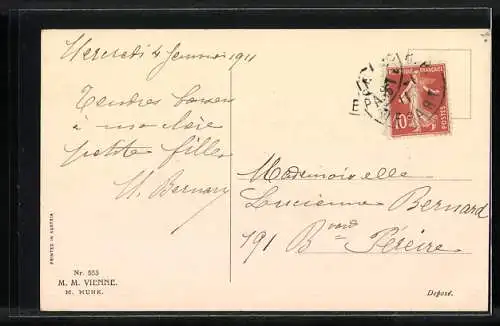 Mercredi 4 Janvier 1911
Tendres baisers
à ma chère
petite fille
M. Bernard
Mademoiselle
Lucienne Bernard
191 Bvard Péreire
FRANÇAISE
POSTES
10
PRINTED IN AUSTRIA
Nr. 555
M. M. VIENNE.
M. MUNK.
Déposé.